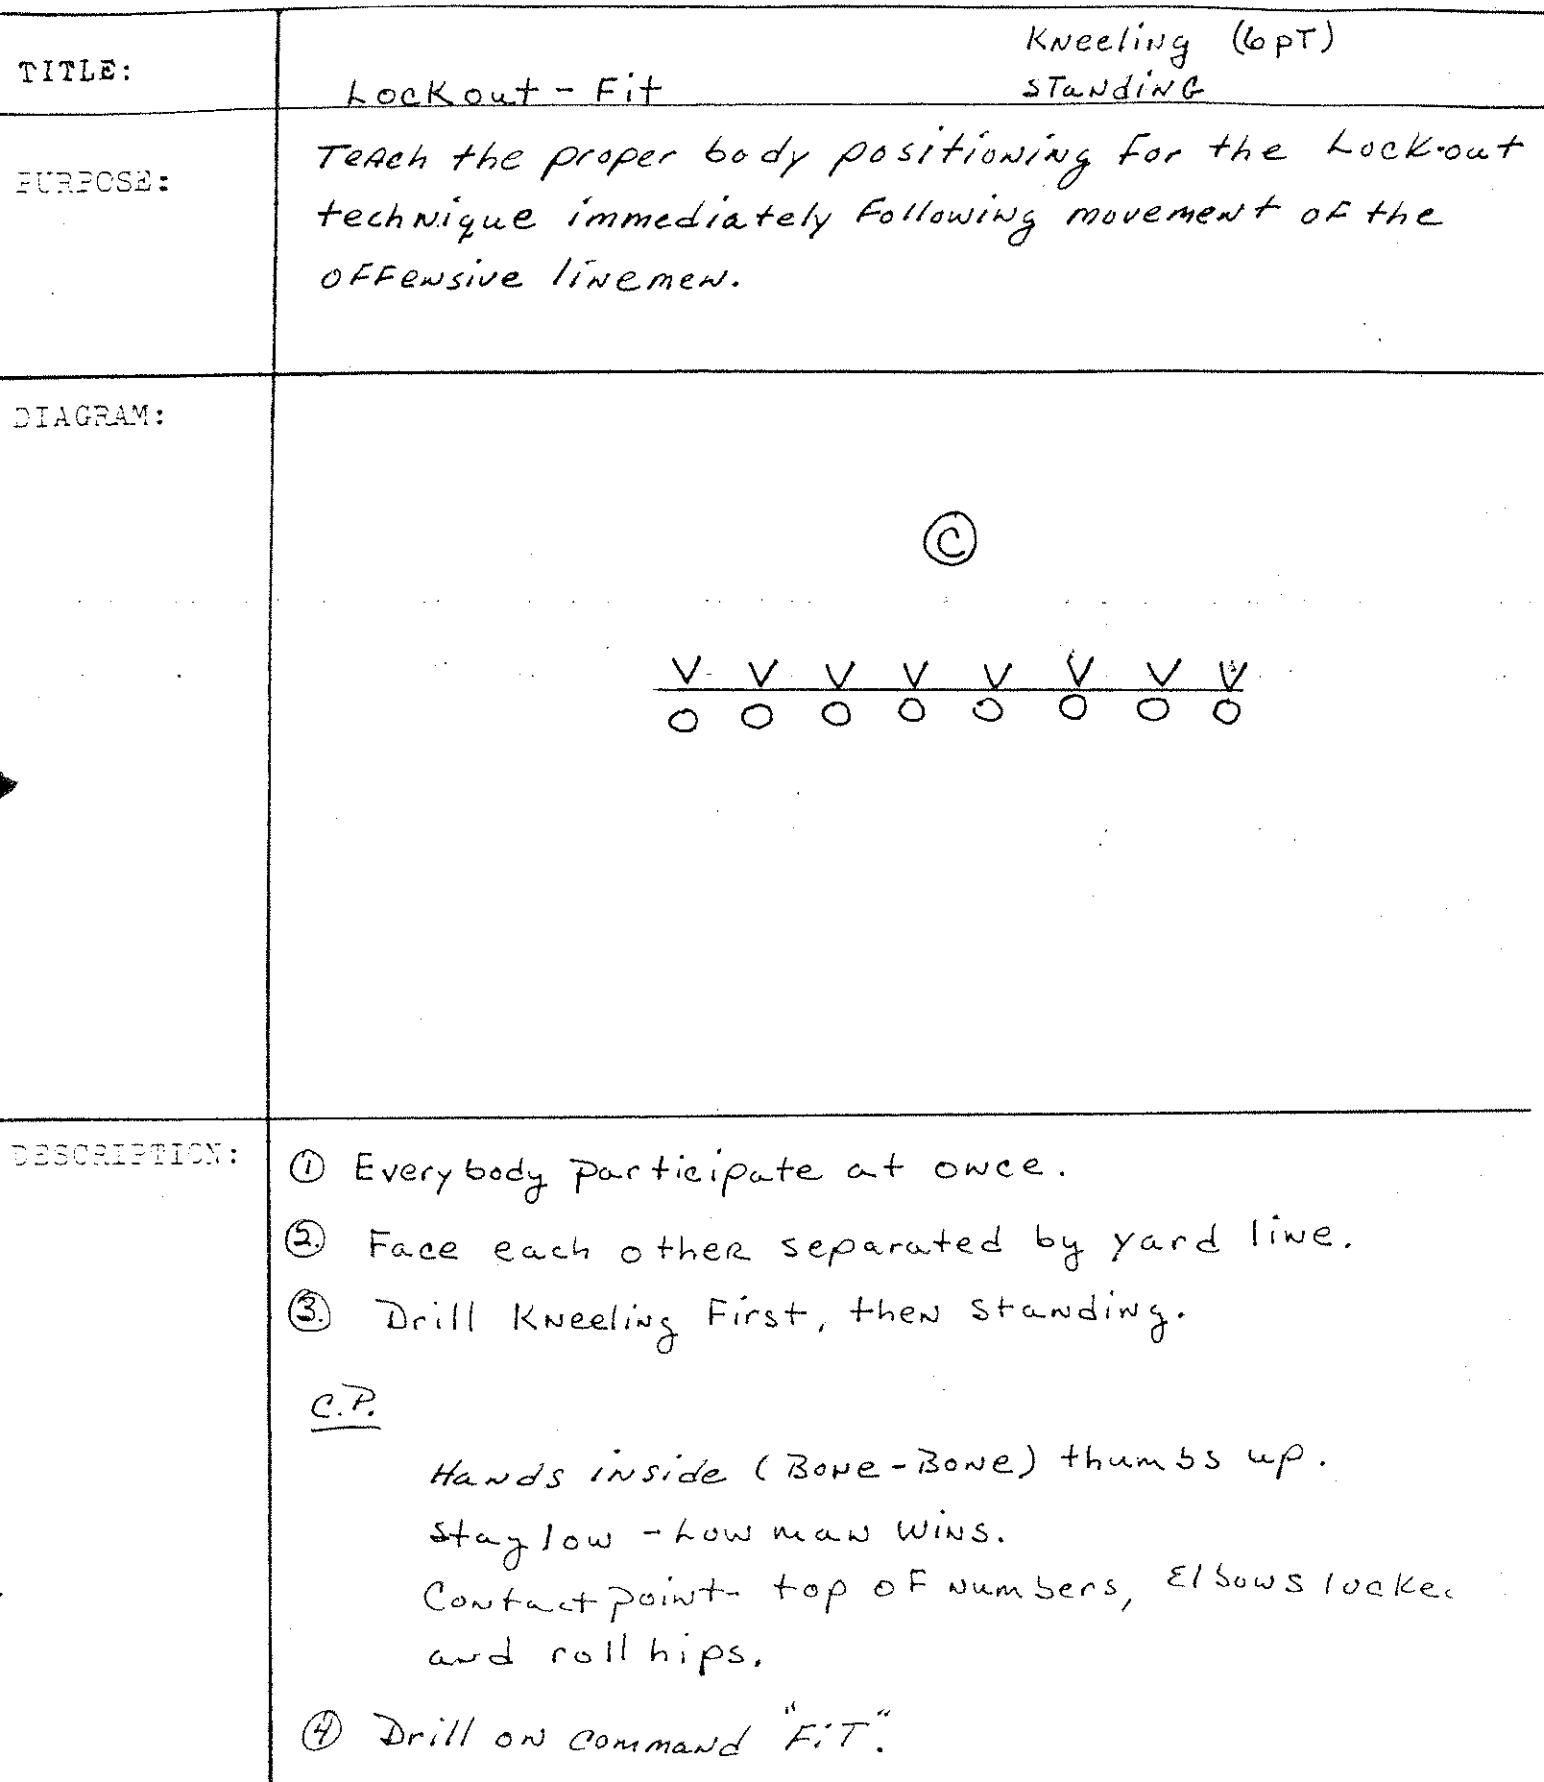 Kneeling (6pT)
TITLE: Lockout - Fit STANDING
PURPOSE: Teach the proper body positioning for the Lock-out
technique immediately following movement of the
offensive linemen.
DIAGRAM:
C
V V V V V V V V
O O O O O O O O
DESCRIPTION: ① Everybody participate at once.
②. Face each other separated by yard line.
③. Drill Kneeling First, then standing.
C.P.
Hands inside (Bone-Bone) thumbs up.
Stay low - Low man wins.
Contact point - top of numbers, Elbows locke
and roll hips.
④ Drill on command "FiT".